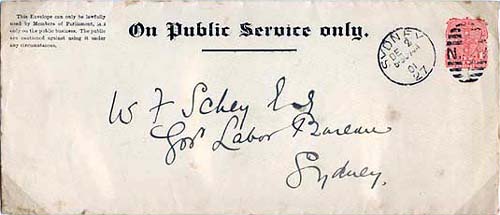 This Envelope can only be lawfully
used by Members of Parliament, and
only on the public business. The public
are cautioned against using it under
any circumstances.
On Public Service only.
SYDNEY
DE 2
01
27
W F Schey Esq
Gov Labor Bureau
Sydney.